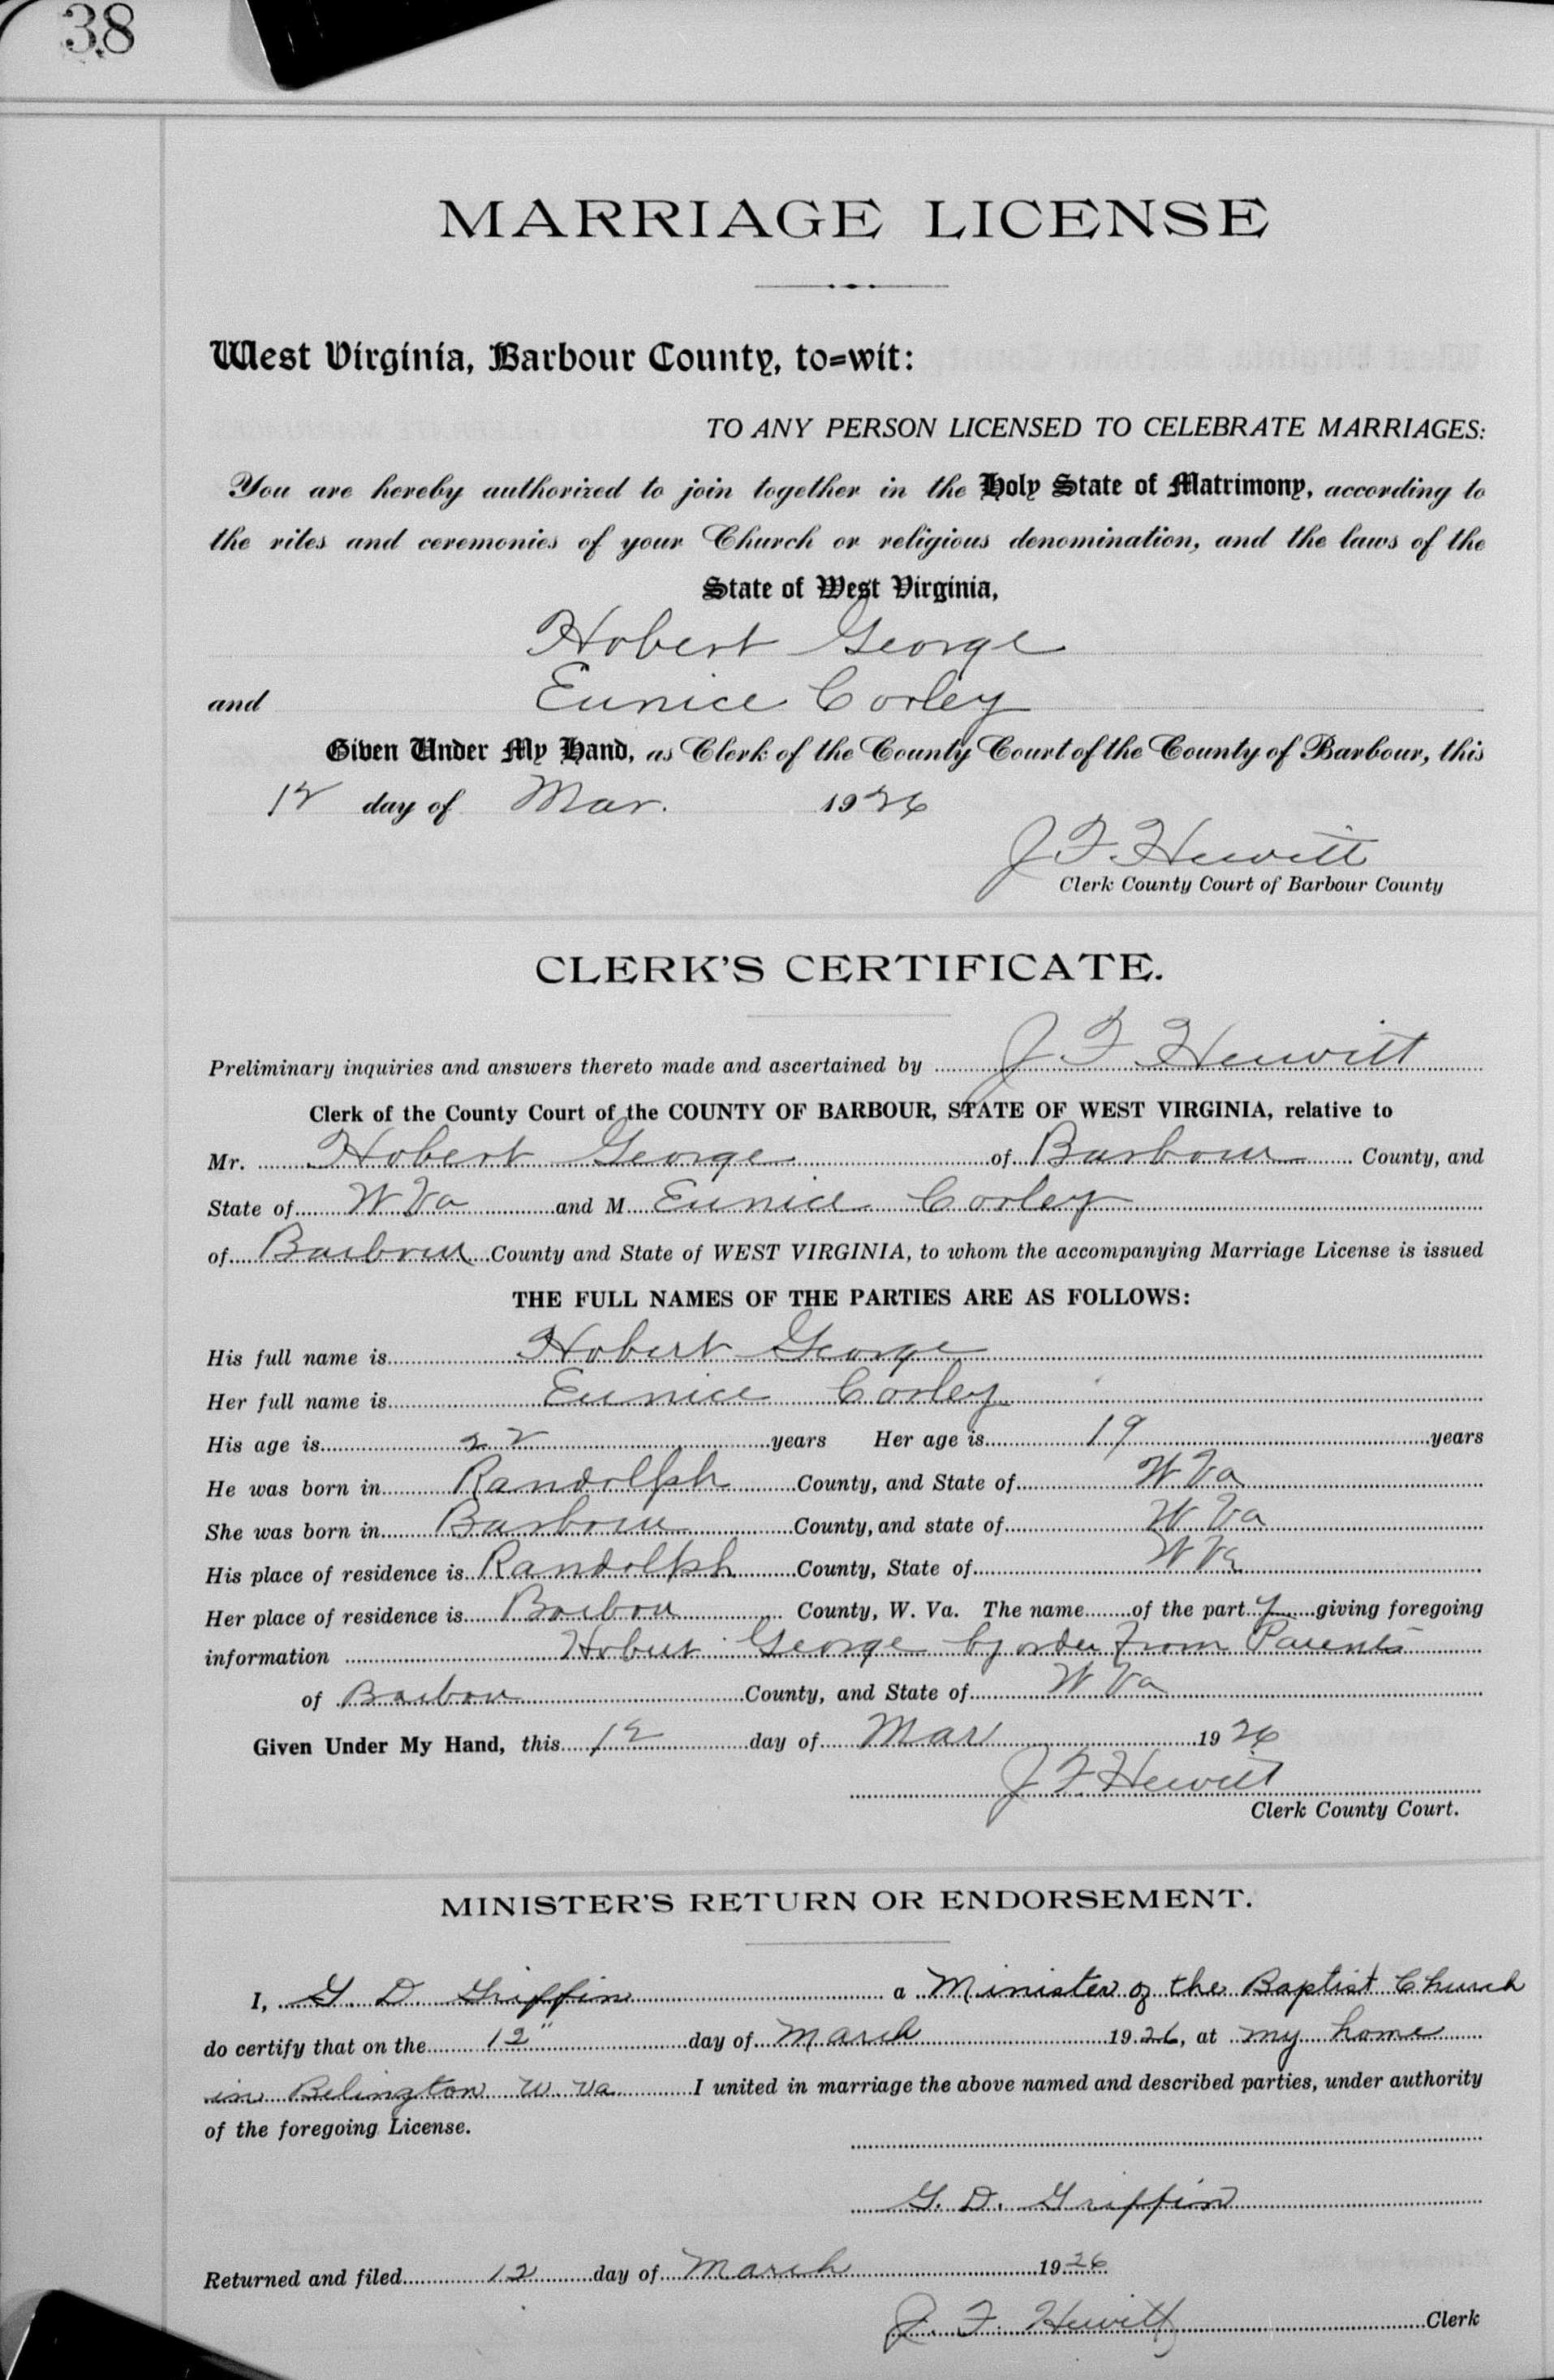 38
MARRIAGE LICENSE
West Virginia, Barbour County, to=wit:
TO ANY PERSON LICENSED TO CELEBRATE MARRIAGES:
You are hereby authorized to join together in the Holy State of Matrimony, according to
the rites and ceremonies of your Church or religious denomination, and the laws of the
State of West Virginia,
Hobert George
and Eunice Corley
Given Under My Hand, as Clerk of the County Court of the County of Barbour, this
12 day of Mar. 1926
J F Hewitt
Clerk County Court of Barbour County
CLERK'S CERTIFICATE.
Preliminary inquiries and answers thereto made and ascertained by J F Hewitt
Clerk of the County Court of the COUNTY OF BARBOUR, STATE OF WEST VIRGINIA, relative to
Mr. Hobert George of Barbour County, and
State of W Va and M Eunice Corley
of Barbour County and State of WEST VIRGINIA, to whom the accompanying Marriage License is issued
THE FULL NAMES OF THE PARTIES ARE AS FOLLOWS:
His full name is Hobert George
Her full name is Eunice Corley
His age is 22 years Her age is 19 years
He was born in Randolph County, and State of W Va
She was born in Barbour County, and state of W Va
His place of residence is Randolph County, State of W Va
Her place of residence is Barbour County, W. Va. The name of the party giving foregoing
information Hobert George by order from Parents
of Barbour County, and State of W Va
Given Under My Hand, this 12 day of Mar 1926
J F. Hewitt
Clerk County Court.
MINISTER'S RETURN OR ENDORSEMENT.
I, G. D. Griffin a Minister of the Baptist Church
do certify that on the 12" day of March 1926, at my home
in Belington W. Va I united in marriage the above named and described parties, under authority
of the foregoing License.
G. D. Griffin
Returned and filed 12 day of March 1926
J. F. Hewitt Clerk